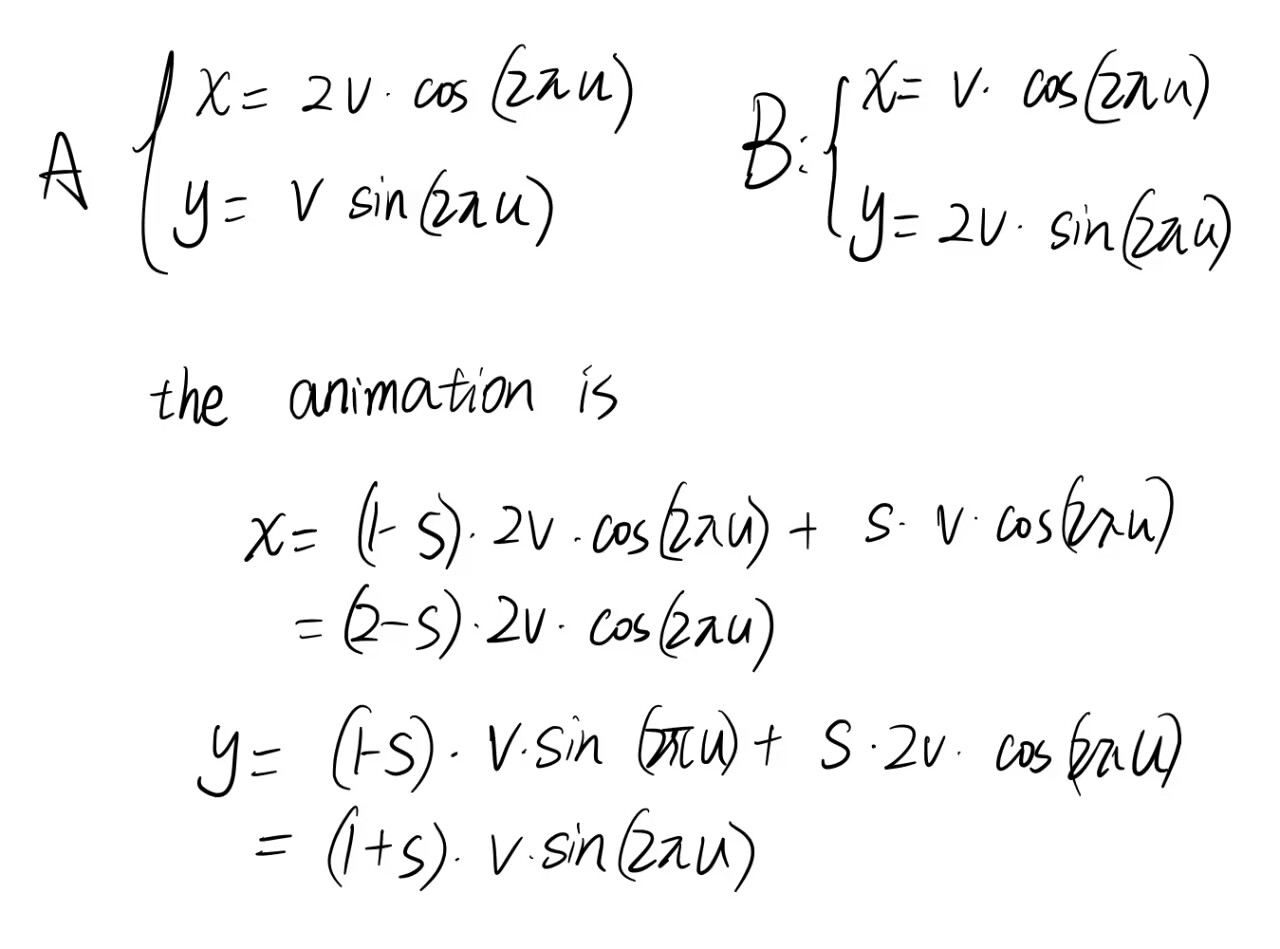 A { x = 2v · cos (2πu)
y = v sin (2πu)
B: { x = v · cos (2πu)
y = 2v · sin (2πu)
the animation is
x = (1 - s) · 2v · cos (2πu) + s · v · cos (2πu)
= (2 - s) · 2v · cos (2πu)
y = (1 - s) · v · sin (2πu) + s · 2v · cos (2πu)
= (1 + s) · v · sin (2πu)